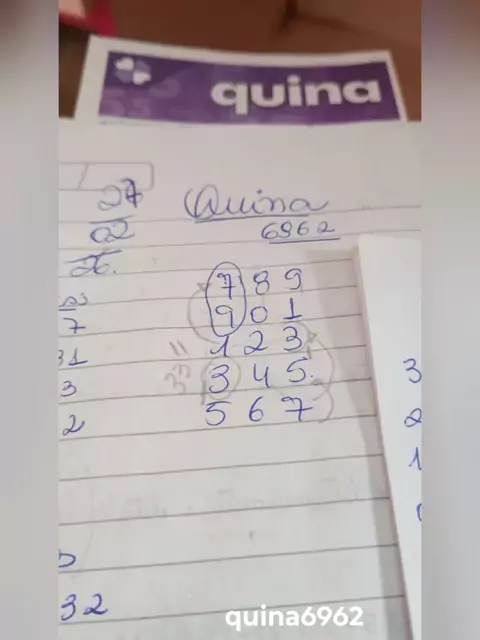 quina
27
02
26.
Quina
6962
7 8 9
9 0 1
1 2 3
3 4 5.
5 6 7
33 11
7
31
3
2
32
3
2
1
quina6962